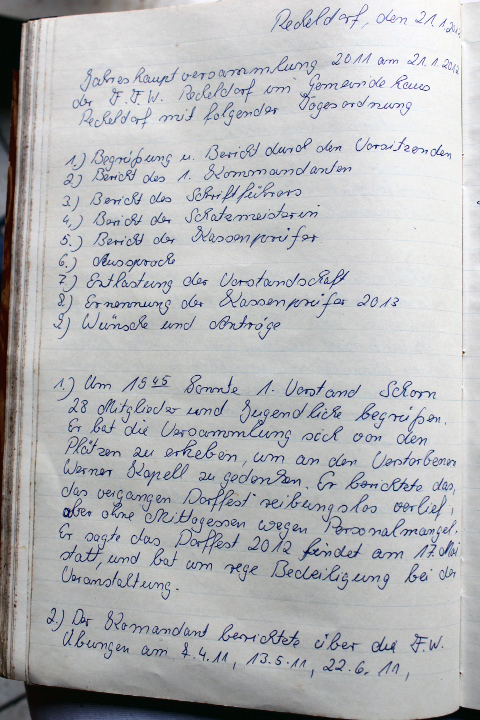 Reckeldorf, den 21.1.2012
Jahreshauptversammlung 2011 am 21.1.2012
der F.F.W. Reckeldorf im Gemeinde Haus
Reckeldorf mit folgender Tagesordnung
1.) Begrüßung u. Bericht durch den Vorsitzenden
2) Bericht des 1. Kommandanten
3.) Bericht des Schriftführers
4.) Bericht der Schatzmeisterin
5.) Bericht der Kassenprüfer
6.) Aussprache
7.) Entlastung der Vorstandschaft
8.) Ernennung der Kassenprüfer 2013
9.) Wünsche und Anträge
1.) Um 19 45 konnte 1. Vorstand Schorn
28 Mitglieder und Jugendliche begrüßen.
Er bat die Versammlung sich von den
Plätzen zu erheben, um an den Verstorbenen
Werner Kapell zu gedenken. Er berichtete das,
das vergangen Dorffest reibungslos verlief,
aber ohne Mittagessen wegen Personalmangel.
Er sagte das Dorffest 2012 findet am 17. Mai
statt, und bat um rege Bedeiligung bei der
Veranstaltung.
2.) Der Komandant berichtete über die F.W.
Übungen am 8.4.11, 13.5.11, 22.6.11,